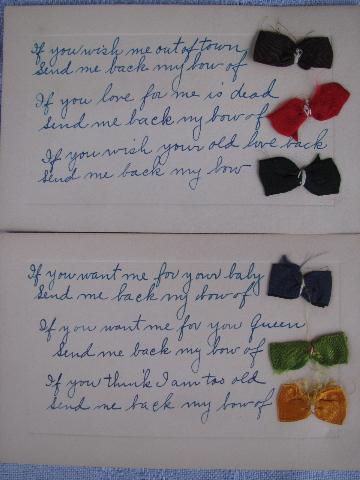 If you wish me out of town
Send me back my bow of
If you love for me is dead
Send me back my bow of
If you wish your old love back
Send me back my bow
If you want me for your baby
Send me back my bow of
If you want me for you Queen
Send me back my bow of
If you think I am too old
Send me back my bow of